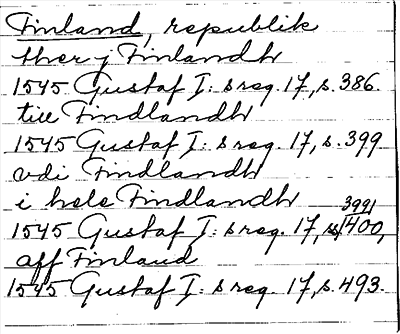 Finland, republik
ther j Finlandh
1545 Gustaf I: s reg. 17, s. 386.
till Findlandh
1545 Gustaf I: s reg. 17, s. 399
vdi Findlandh
i hele Findlandh
1545 Gustaf I: s reg. 17, s. 399/400,
aff Finland
1545 Gustaf I: s reg. 17, s. 493.